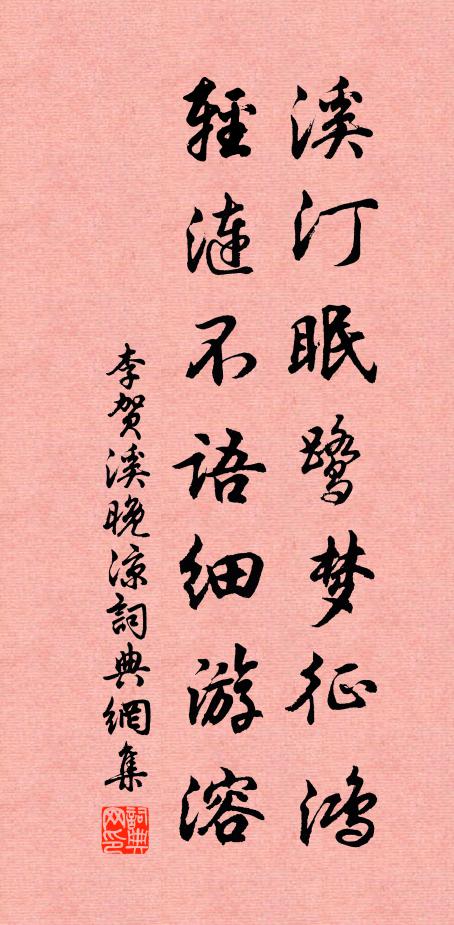 溪汀眠鹭梦征鸿
轻涟不语细游溶
李贺溪晚凉詞典網集
詞典网印